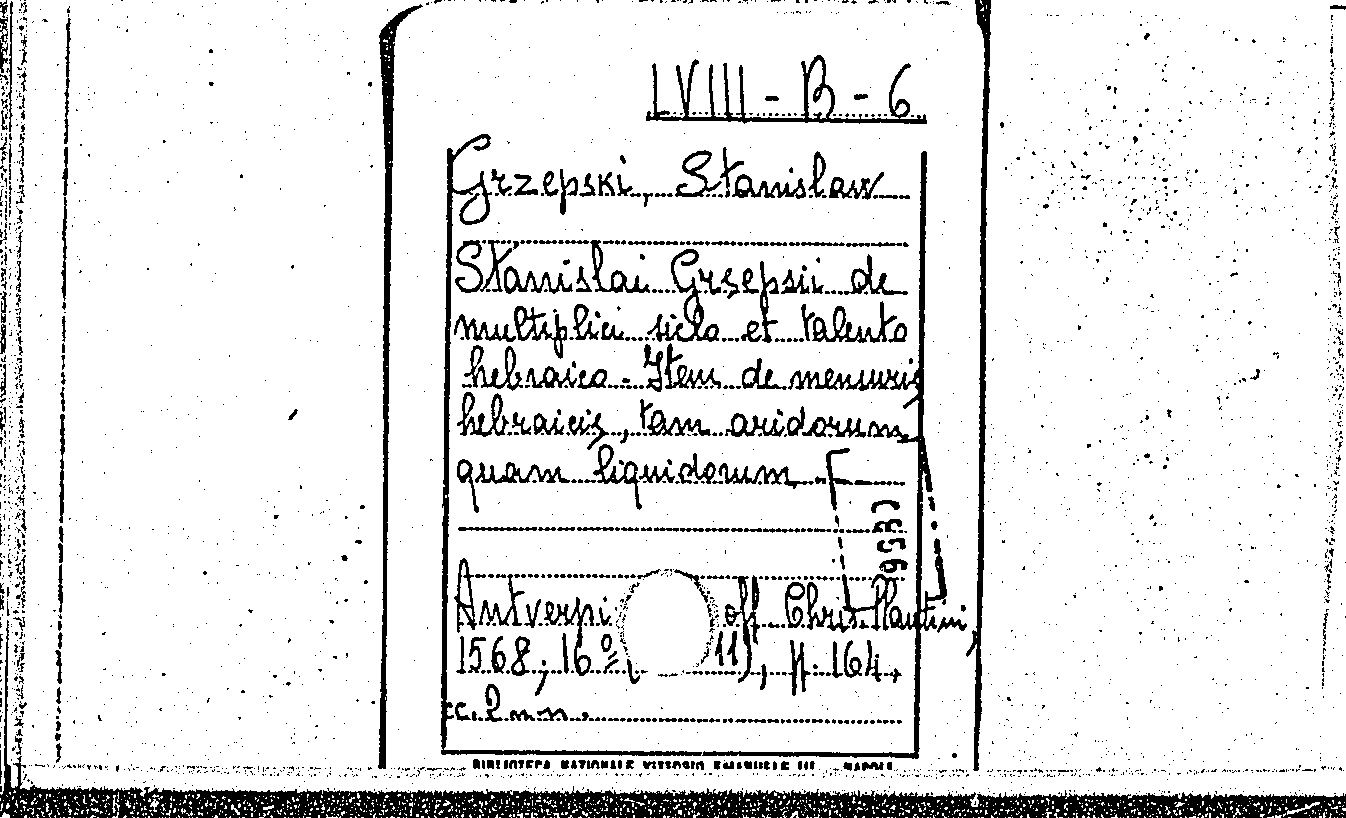 LVIII - B - 6
Grzepski, Stanislaw
Stanislai Grsepsii de
multiplici siclo et talento
hebraico. Item de mensuris
hebraicis, tam aridorum,
quam liquidorum.
Antverpi off. Chris. Plantini,
1568, 16º ( 11), pp. 164,
cc. 2 n n.
BIBLIOTECA NAZIONALE VITTORIO EMANUELE III - NAPOLI